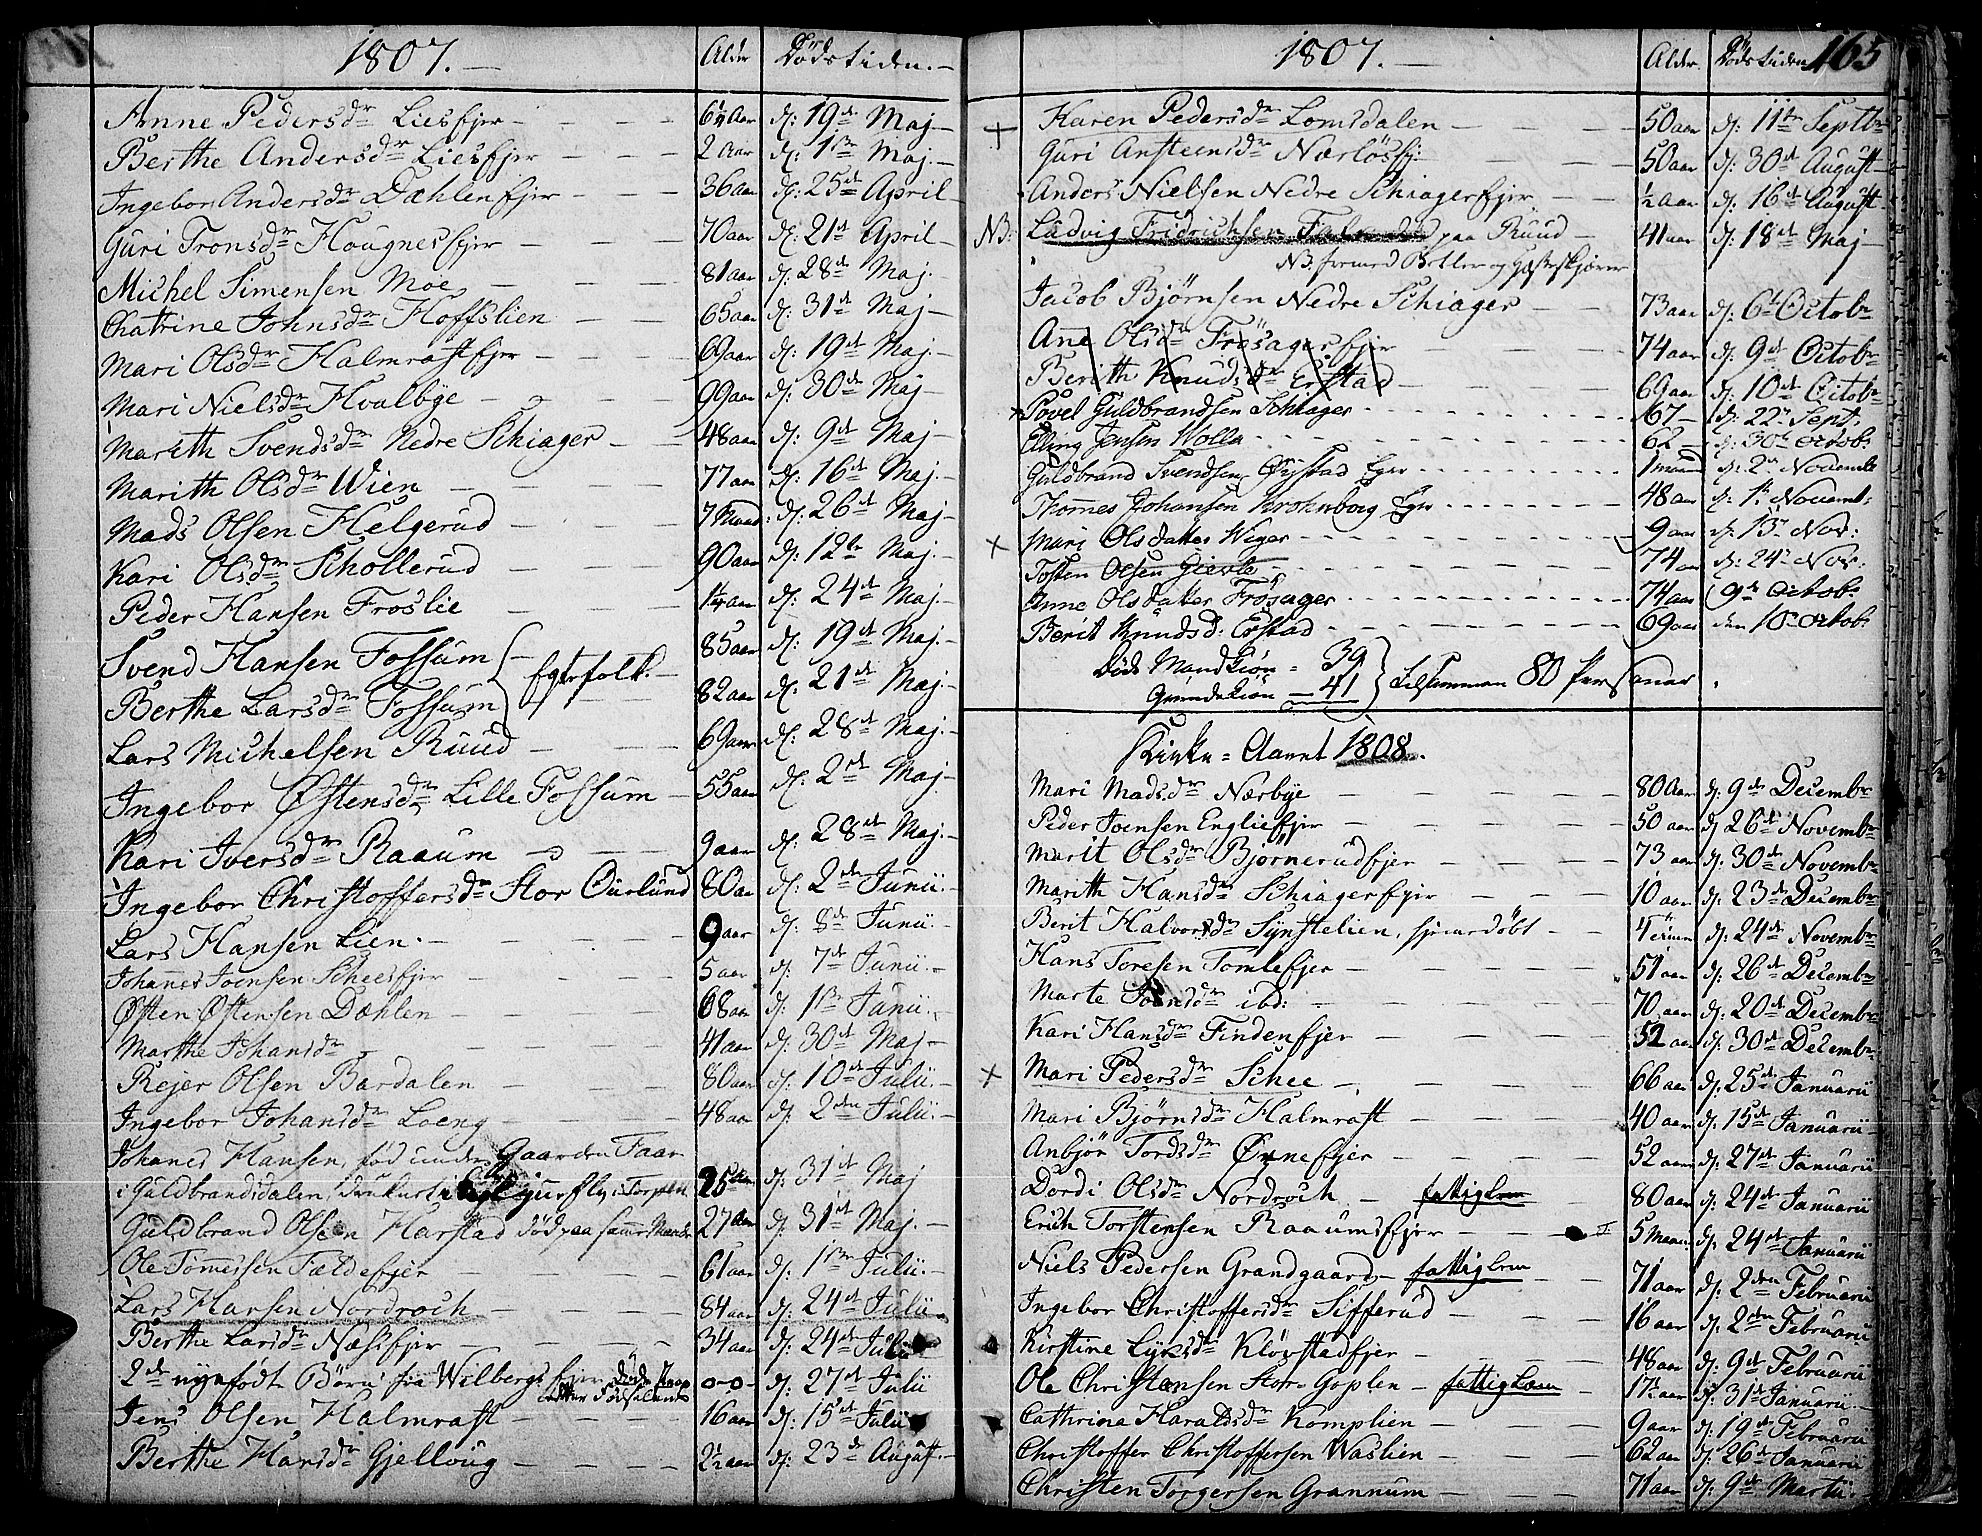 1807. Alder Dødstiden.
Anne Pedersdr Liesfjer 6¼ Aar d: 19de Maj
Berthe Andersdr Liesfjer 2 Aar d: 1ste Maj
Ingebor Andersdr Dæhlenfjer 36 aar d: 25de April
Guri Tronsdr Hougnesfjer 70 aar d: 21de April
Michel Simensen Moe 81 aar d: 28de Maj
Chatrine Johnsdr Hoffslien 65 aar d: 31de Maj
Mari Olsdr Halmrastfjer 69 aar d: 19de Maj
Mari Nielsdr Hvalbye 99 aar d: 30de Maj
Marith Svendsdr Nedre Schiager 48 aar d: 9de Maj
Marith Olsdr Wien 77 aar d: 16de Maj
Mads Olsen Helgerud 7 Maad: d: 26de Maj
Kari Olsdr Schollerud 90 aar d: 12te Maj
Peder Hansen Froslie 1¼ aar d: 24de Maj
Svend Hansen Fossum 85 aar d: 19de Maj
Egtefolk
Berthe Larsdr Fossum 82 aar d: 21de Maj
Lars Michelsen Ruud 69 aar d: 28de Maj
Ingebor Østensdr Lille Fossum 55 aar d: 2de Maj
Kari Iversdr Raaum 9 aar d: 28de Maj
Ingebor Christoffersdr Stor Ourlund 80 aar d: 2den Junii
Lars Hansen Lien 9 aar d: 8de Junii
Johannes Joensen Scheesfjer 5 aar d: 7de Junii
Østen Østensen Dæhlen 68 aar d: 1ste Junii
Marthe Johansdr 41 aar d: 30de Maj
Rejer Olsen Bardalen 80 aar d: 10de Julii
Ingebor Johansdr Loeng 48 aar d: 2den Julii
Johanes Hansen, fød under Gaarden Faar
i Guldbrandsdalen, 25 Aar d: 31de Maj
Guldbrand Olsen Harstad død paa samme Maade 27 Aar d: 31de Maj
Ole Tomessen Fældefjer 61 aar d: 1ste Julii
Lars Hansen Nordroch 84 aar d: 24de Julii
Berthe Larsdr Næssfjer 34 aar d: 24de Julii
2de nyefødt Børn fra Wilbergsfjer døde strax efter Fødselen 0-0 d: 27de Julii
Jens Olsen Halmrast 16 aar d: 15de Julii
Berthe Hansdr Gjelloug 2½ aar d: 23de August
1807. Alder. Dødstiden 165
+ Karen Pedersdr Lomsdalen 50 aar d: 11te Septbr
Guri Ansteensdr Nærløsfj: 50 aar d: 30de August
Anders Nielsen Nedre Schiagerfjer ½ aar d: 16de August
NB: Ludvig Fridrichsen paa Ruud 41 aar d: 18de Maj
Jacob Bjørnsen Nedre Schiager 73 aar d: 6te Octobr
Ane Olsdr Frøsagerfjer 74 aar d: 9de Octobr
Berith Knudsdr Erstad 69 aar d: 10de Octobr
Povel Guldbrandsen Schiager 67 d: 22de Sept:
Elling Jensen Wolla 62 d: 30te Octob:
Guldbrand Svendsen Øystad Eger 1 maaned d: 2de Novemb
Thomes Johansen Krohnborg Eger 48 aar d: 1te Novemb:
+ Mari Olsdatter Wiger 9 aar d: 13de Nov:
Tosten Olsen Gierle 74 aar d: 24de Nov:
Anne Olsdatter Frøsager 74 aar 9de Octobr
Berit Knudsd: Erstad 69 aar den 10de Octobr
Døde Mandkiøn = 39
Qvindekiøn 41 Tilsammen 80 Personer.
Kirke-Aaret 1808.
Mari Madsdr Nærbye 80 Aar d: 9de Decembr
Peder Joensen Engliefjer 50 aar d: 26de Novembr
Marit Olsdr Bjørnerudfjer 73 aar d: 30de Novembr
Marith Hansdr Schiagerfjer 10 aar d: 23de Decembr
Berit Halvorsdr Synstelien, hjemdøbt 4 d: 24de Novembr
Hans Toresen Tomlefjer 51 aar d: 26de Decembr
Marte ibd: 70 aar d: 20de Decembr
Kari Hansdr Findenfjer 52 aar d: 30de Decembr
+ Mari Pedersdr Schee 66 aar d: 25de Januarii
Mari Bjørnsdr Halmrast 40 aar d: 15de Januarii
Anbjør Tordsdr Ørnefjer 52 aar d: 27de Januarii
Dordi Olsdr Nordroch fattiglem 80 aar d: 24de Januarii
Erich Torstensen Raaumsfjer 5 Maan: d: 24de Januarii
Niels Pedersen Grandgaard fattiglem 71 aar d: 2den Februarii
Ingebor Christoffersdr Sifferud 16 aar d: 2den Februarii
Kirstine Larsdr Kløvstadfjer 48 aar d: 9de Februarii
Ole Christensen Stor Goplen fattiglem 17½ aar d: 31de Januarii
Cathrina Haraldsdr Komplien 9 aar d: 19de Februarii
Christoffer Christoffersen Waslien 62 aar d: 26de Januarii
Christen Torgersen Grannum 71 aar d: 9de Martii